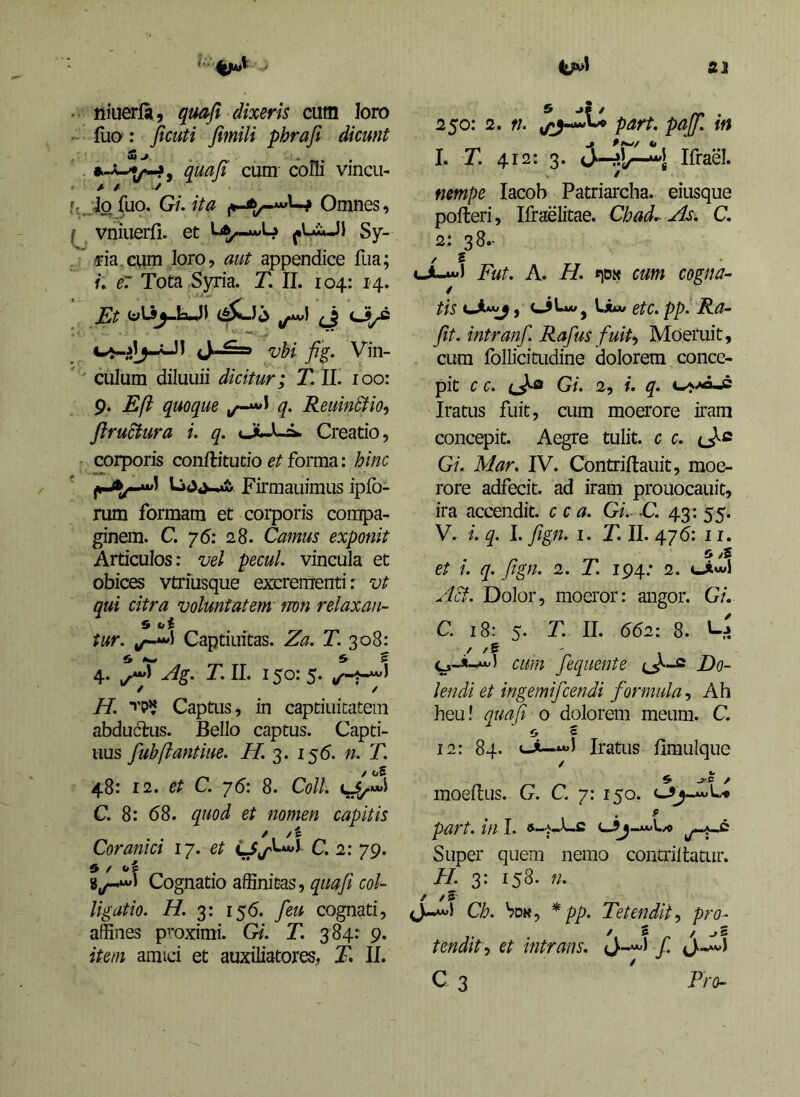 اسر
niuerſa, quaſi dixeris cum loro
ſuo: ſicuti ſimili phraſi dicunt
برمته, quaſi cum colli vincu-
lo ſuo. Gi. ita بأسرهم Omnes,
vniuerſi. et الشام بأسرها Sy-
ria cum loro, aut appendice ſua;
i. e. Tota Syria. T. II. 104: 14.
Et
vbi ſig. Vin-
culum diluuii dicitur; T. II. 100:
9. Eſt quoque أسر q. Reuinctio,
ſtructura i. q. خلق Creatio,
corporis conſtitutio et forma: hinc
شددنا أسرهم Firmauimus ipſo-
rum formam et corporis compa-
ginem. C. 76: 28. Camus exponit
Articulos: vel pecul. vincula et
obices vtriusque excrementi: vt
qui citra voluntatem non relaxan-
tur. أسر Captiuitas. Za. T. 308:
4. Ag. T. II. 150: 5. أسير
H. Captus, in captiuitatem
abductus. Bello captus. Capti-
uus ſubſtantiue. H. 3. 156. n. T.
48: 12. et C. 76: 8. Coll. أسرى
C. 8: 68. quod et nomen capitis
Coranici 17. et أسارى C. 2: 79.
أسرة Cognatio affinitas, quaſi col-
ligatio. H. 3: 156. ſeu cognati,
affines proximi. Gi. T. 384: 9.
item amici et auxiliatores, T. II.
اسل 21
250: 2. n. مأسور part. paſſ. in
I. T. 412: 3. إسرآيل Iſraël.
nempe Iacob Patriarcha. eiusque
poſteri, Iſraëlitae. Chad. As. C.
2: 38.
أسف Fut. A. H. אסף cum cogna-
tis etc. pp. Ra-
ſit. intranſ. Raſus fuit, Moeruit,
cum ſollicitudine dolorem conce-
pit c c. على Gi. 2, i. q. غضب
Iratus fuit, cum moerore iram
concepit. Aegre tulit. c c. على
Gi. Mar. IV. Contriſtauit, moe-
rore adfecit. ad iram prouocauit,
ira accendit. c c a. Gi. C. 43: 55.
V. i. q. I. ſign. 1. T. II. 476: 11.
et i. q. ſign. 2. T. 194: 2. أسف
Act. Dolor, moeror: angor. Gi.
C. 18: 5. T. II. 662: 8. يا
أسفى cum ſequente على Do-
lendi et ingemiſcendi formula, Ah
heu! quaſi o dolorem meum. C.
12: 84. أسف Iratus ſimulque
moeſtus. G. C. 7: 150. مأسوف
part. in I. غير مأسوف عليه
Super quem nemo contriſtatur.
H. 3: 158. n.
أسل Ch. אסל, * pp. Tetendit, pro-
tendit, et intrans. أسل ſ. أسل
C 3 Pro-